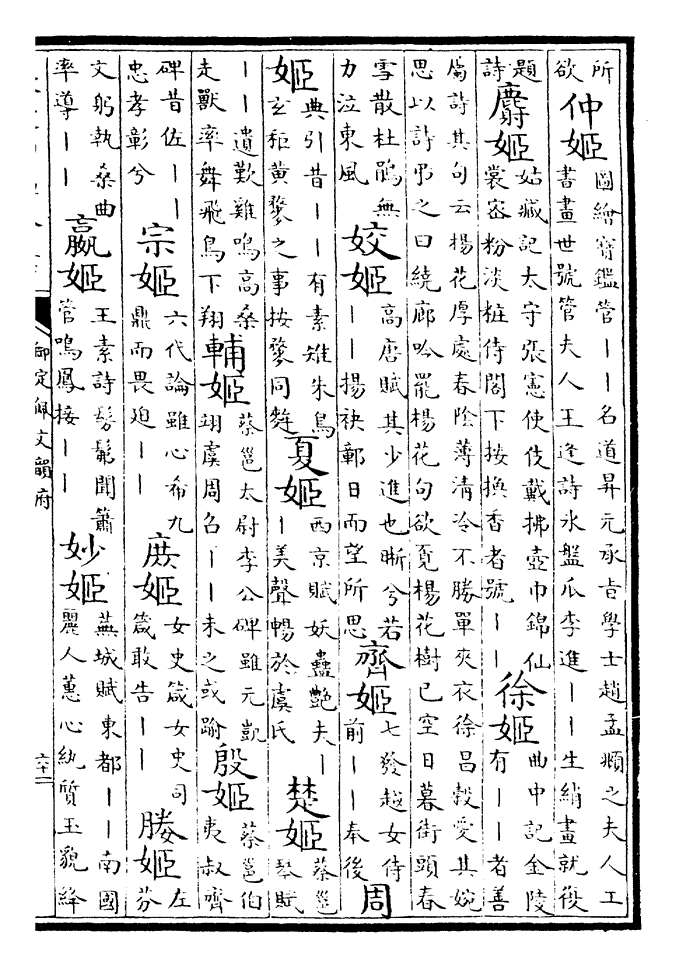 所欲仲姬圖繪寳鑑管丨丨名道昇元承旨學士趙孟頫之夫人工書畫世號管夫人王逢詩氷盤瓜李進丨丨生綃畫就復
題詩麝姬姑臧記太守張憲使伎戴拂壺巾錦仙裳宻粉淡粧侍閣下按換香者號丨丨徐姬曲中記金陵有丨丨者善
屬詩其句云楊花厚處春陰薄清冷不勝單夾衣徐昌穀受其婉思以詩弔之曰繞廊吟罷楊花句欲覓楊花樹已空日暮街頭春
雪散杜鵑無力泣東風姣姬高唐賦其少進也晰兮若丨丨揚袂鄣日而望所思齊姬七發越女侍前丨丨奉後周
姬典引昔丨丨有素雉朱烏玄秬黄麰之事按麰同䴷夏姬西京賦妖蠱豔夫丨丨美聲暢於虞氏楚姬蔡邕琴賦
丨丨遺歎雞鳴高桑走獸率舞飛鳥下翔輔姬蔡邕太尉李公碑雖元凱翊虞周召丨丨未之或踰殷姬蔡邕伯夷叔齊
碑昔佐丨丨忠孝彰兮宗姬六代論雖心希九鼎而畏迫丨丨庶姬女史箴女史司箴敢告丨丨媵姬左芬
文躬執桑曲率導丨丨嬴姬王素詩髣髴聞簫管鳴鳳接丨丨妙姬蕪城賦東都丨丨南國麗人蕙心紈質玉貌絳
御定佩文韻府
六十二